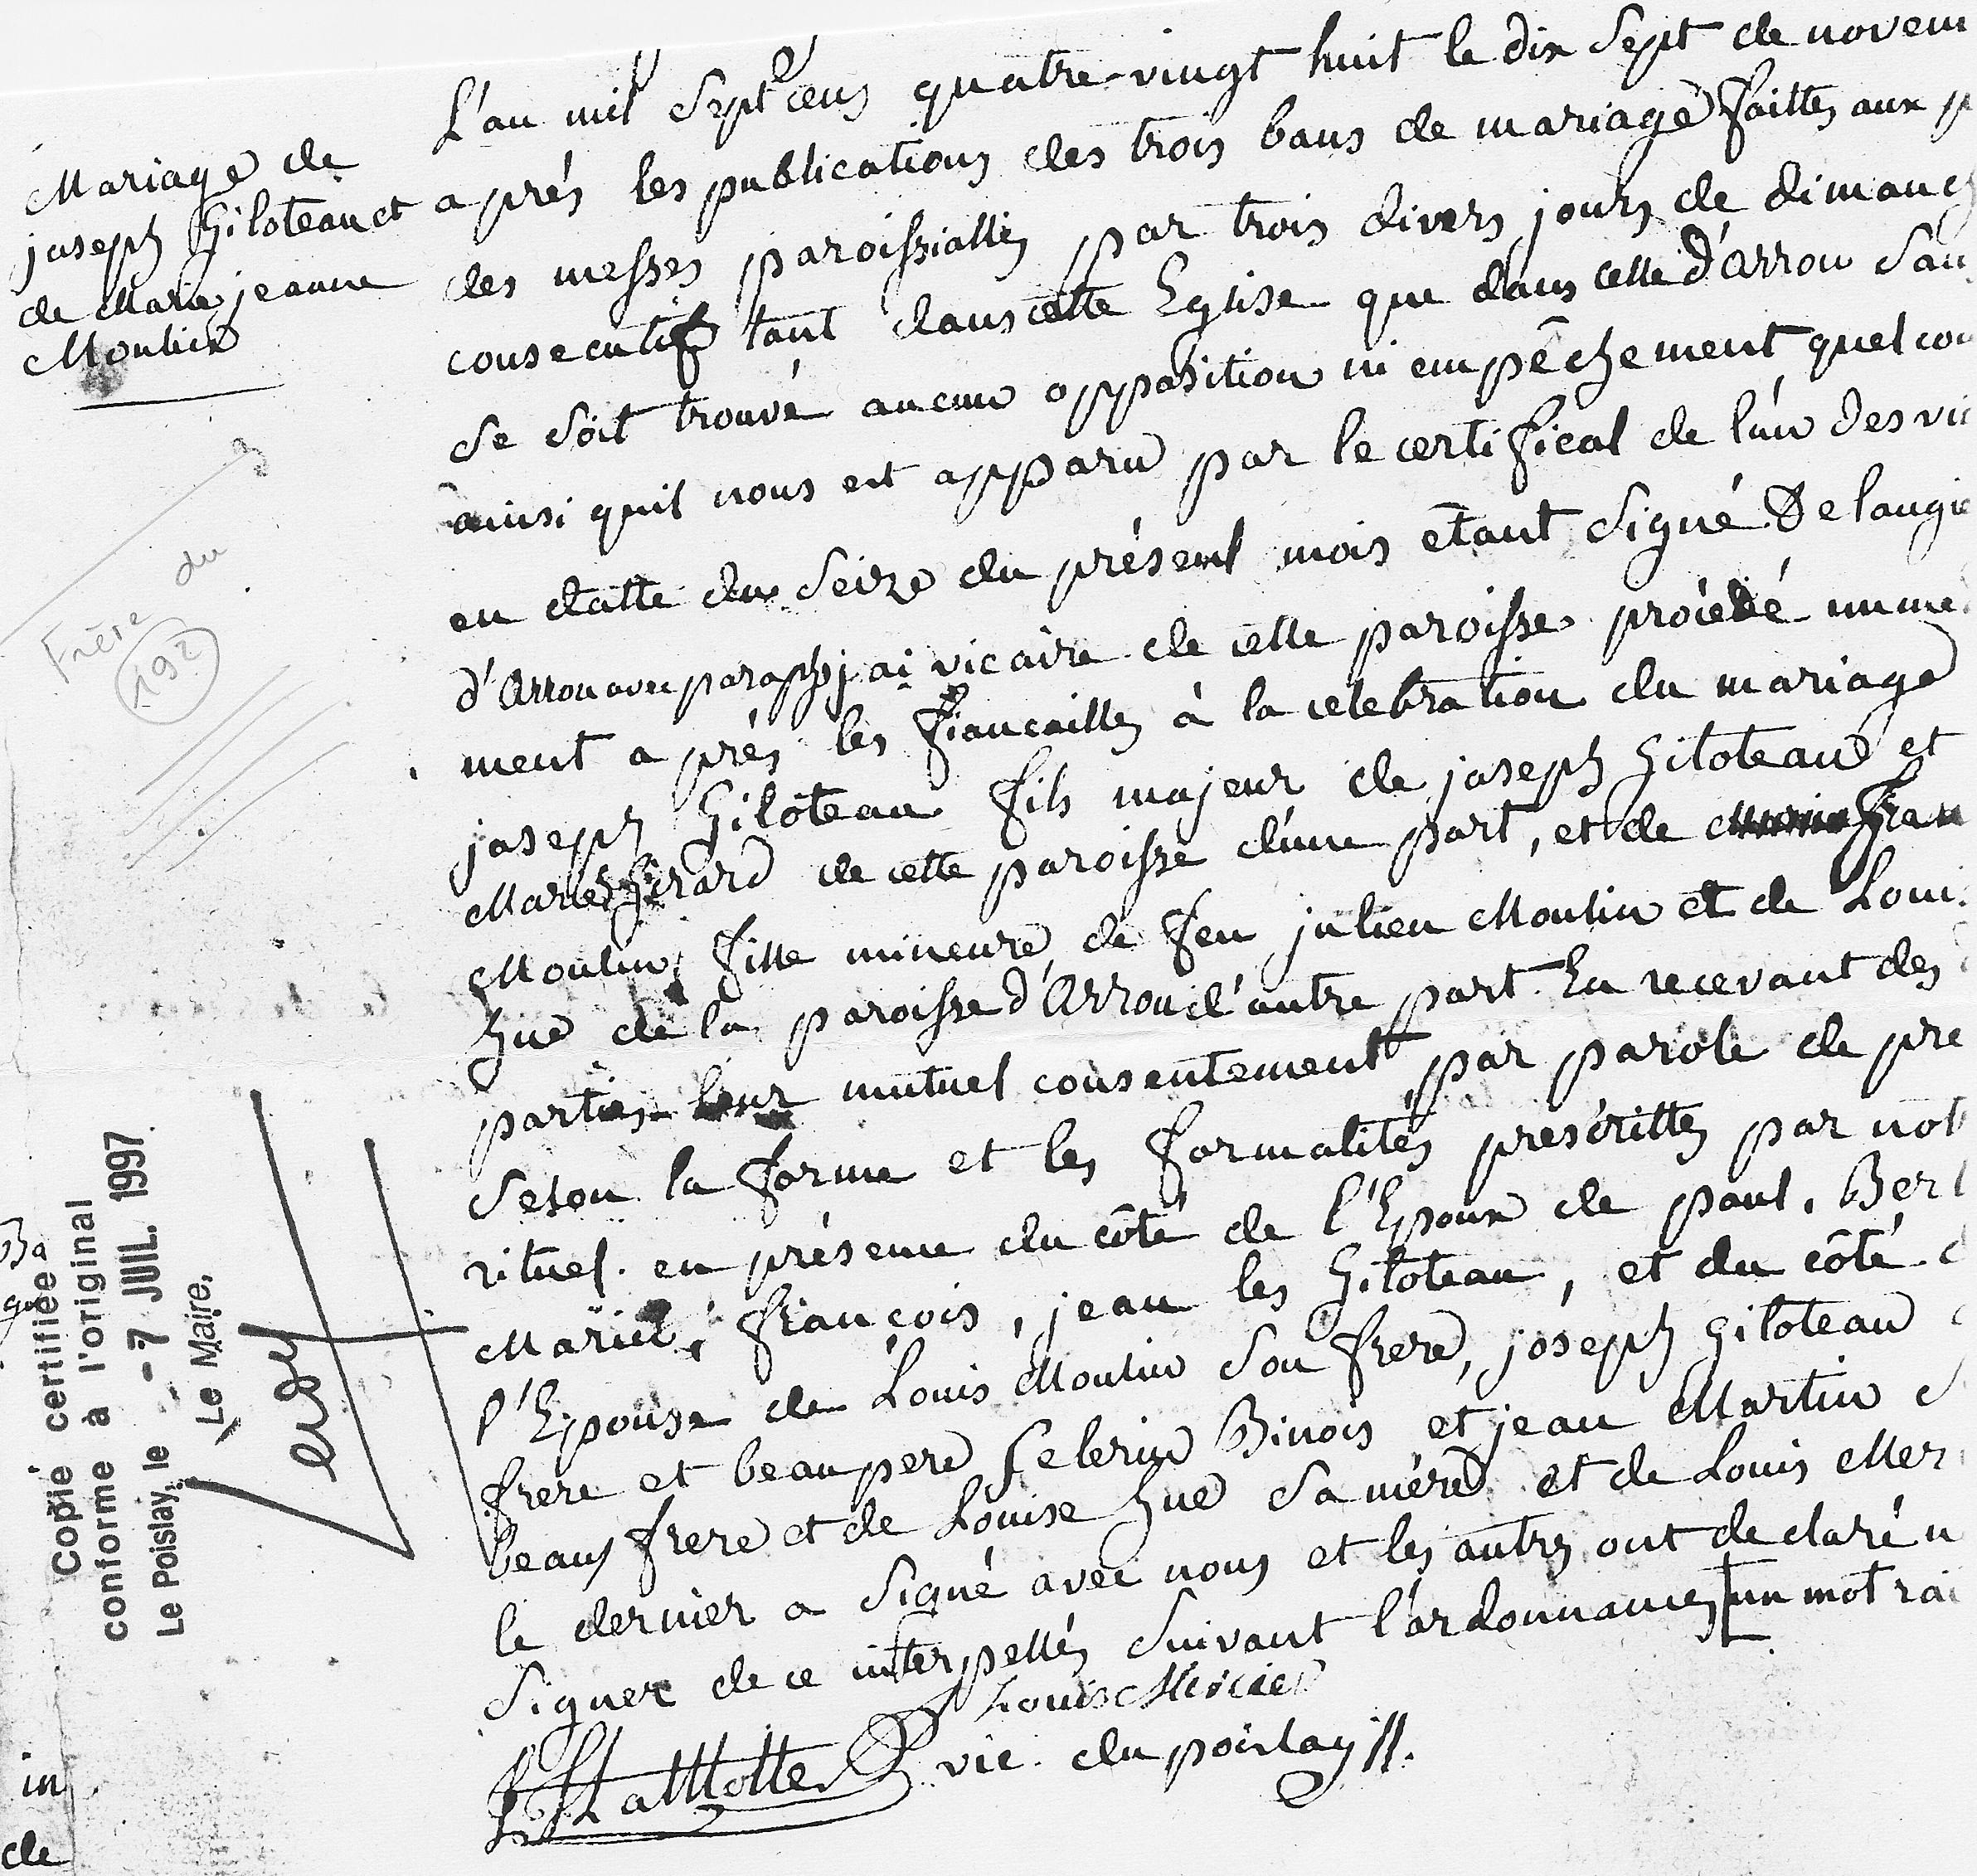 Mariage de
joseph Giloteau et
de Marie jeanne
Moulin
Frère du
192
L'an mil Sept cens quatre-vingt huit le dix Sept de novem
aprés les publications des trois bans de mariage faittes aux p
des messes paroissialles par trois divers jours de dimanch
consecutifs tant dans cette Eglise que dans celle d'Arrou San
Se Soit trouvé aucun opposition ni empêchement quelcon
ainsi quil nous est apparu par le certifical de l'un des vic
en datte du Seize du présent mois etant Signé Delangie
d'Arrou avec paraphe j'ai vicaire de cette paroisse procédé imme
ment aprés les fiancailles à la celebration du mariage
joseph Giloteau fils majeur de joseph Giloteau et
Marie Girard de cette paroisse d'une part, et de Jean
Moulin fille mineure de feu julien Moulin et de Loui
hue de la paroisse d'Arrou d'autre part. En recevant des
parties leur mutuel consentement par parole de pre
Selon la forme et les formalités prescrittes par not
rituel. en présence du côté de l'Epoux de paul, Bert
Mariet, françois, jean les Giloteau, et du côté d
l'Epouse de Louis Moulin Son frere, joseph giloteau
frere et beaupere Celerin Binois et jean Martin S
beaux frere et de Louise hue Sa mére et de Louis Mer
le dernier a Signé avec nous et les autres ont declaré n
Signer de ce interpellés Suivant l'ordonnance un mot rai
Louis Mercier
LaMotte vic. du poislay
Copie certifiée
conforme à l'original
Le Poislay, le - 7 JUIL. 1997
Le Maire,
Ba
que
in
de